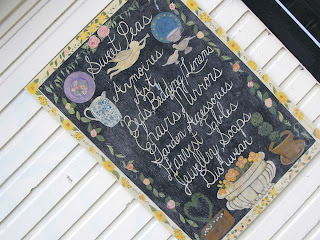 Sweet Peas
Armoires
Art
Beds Bedding Linens
Chairs Mirrors
Garden Accessories
Harvest Tables
Jewellery Soaps
Dishware